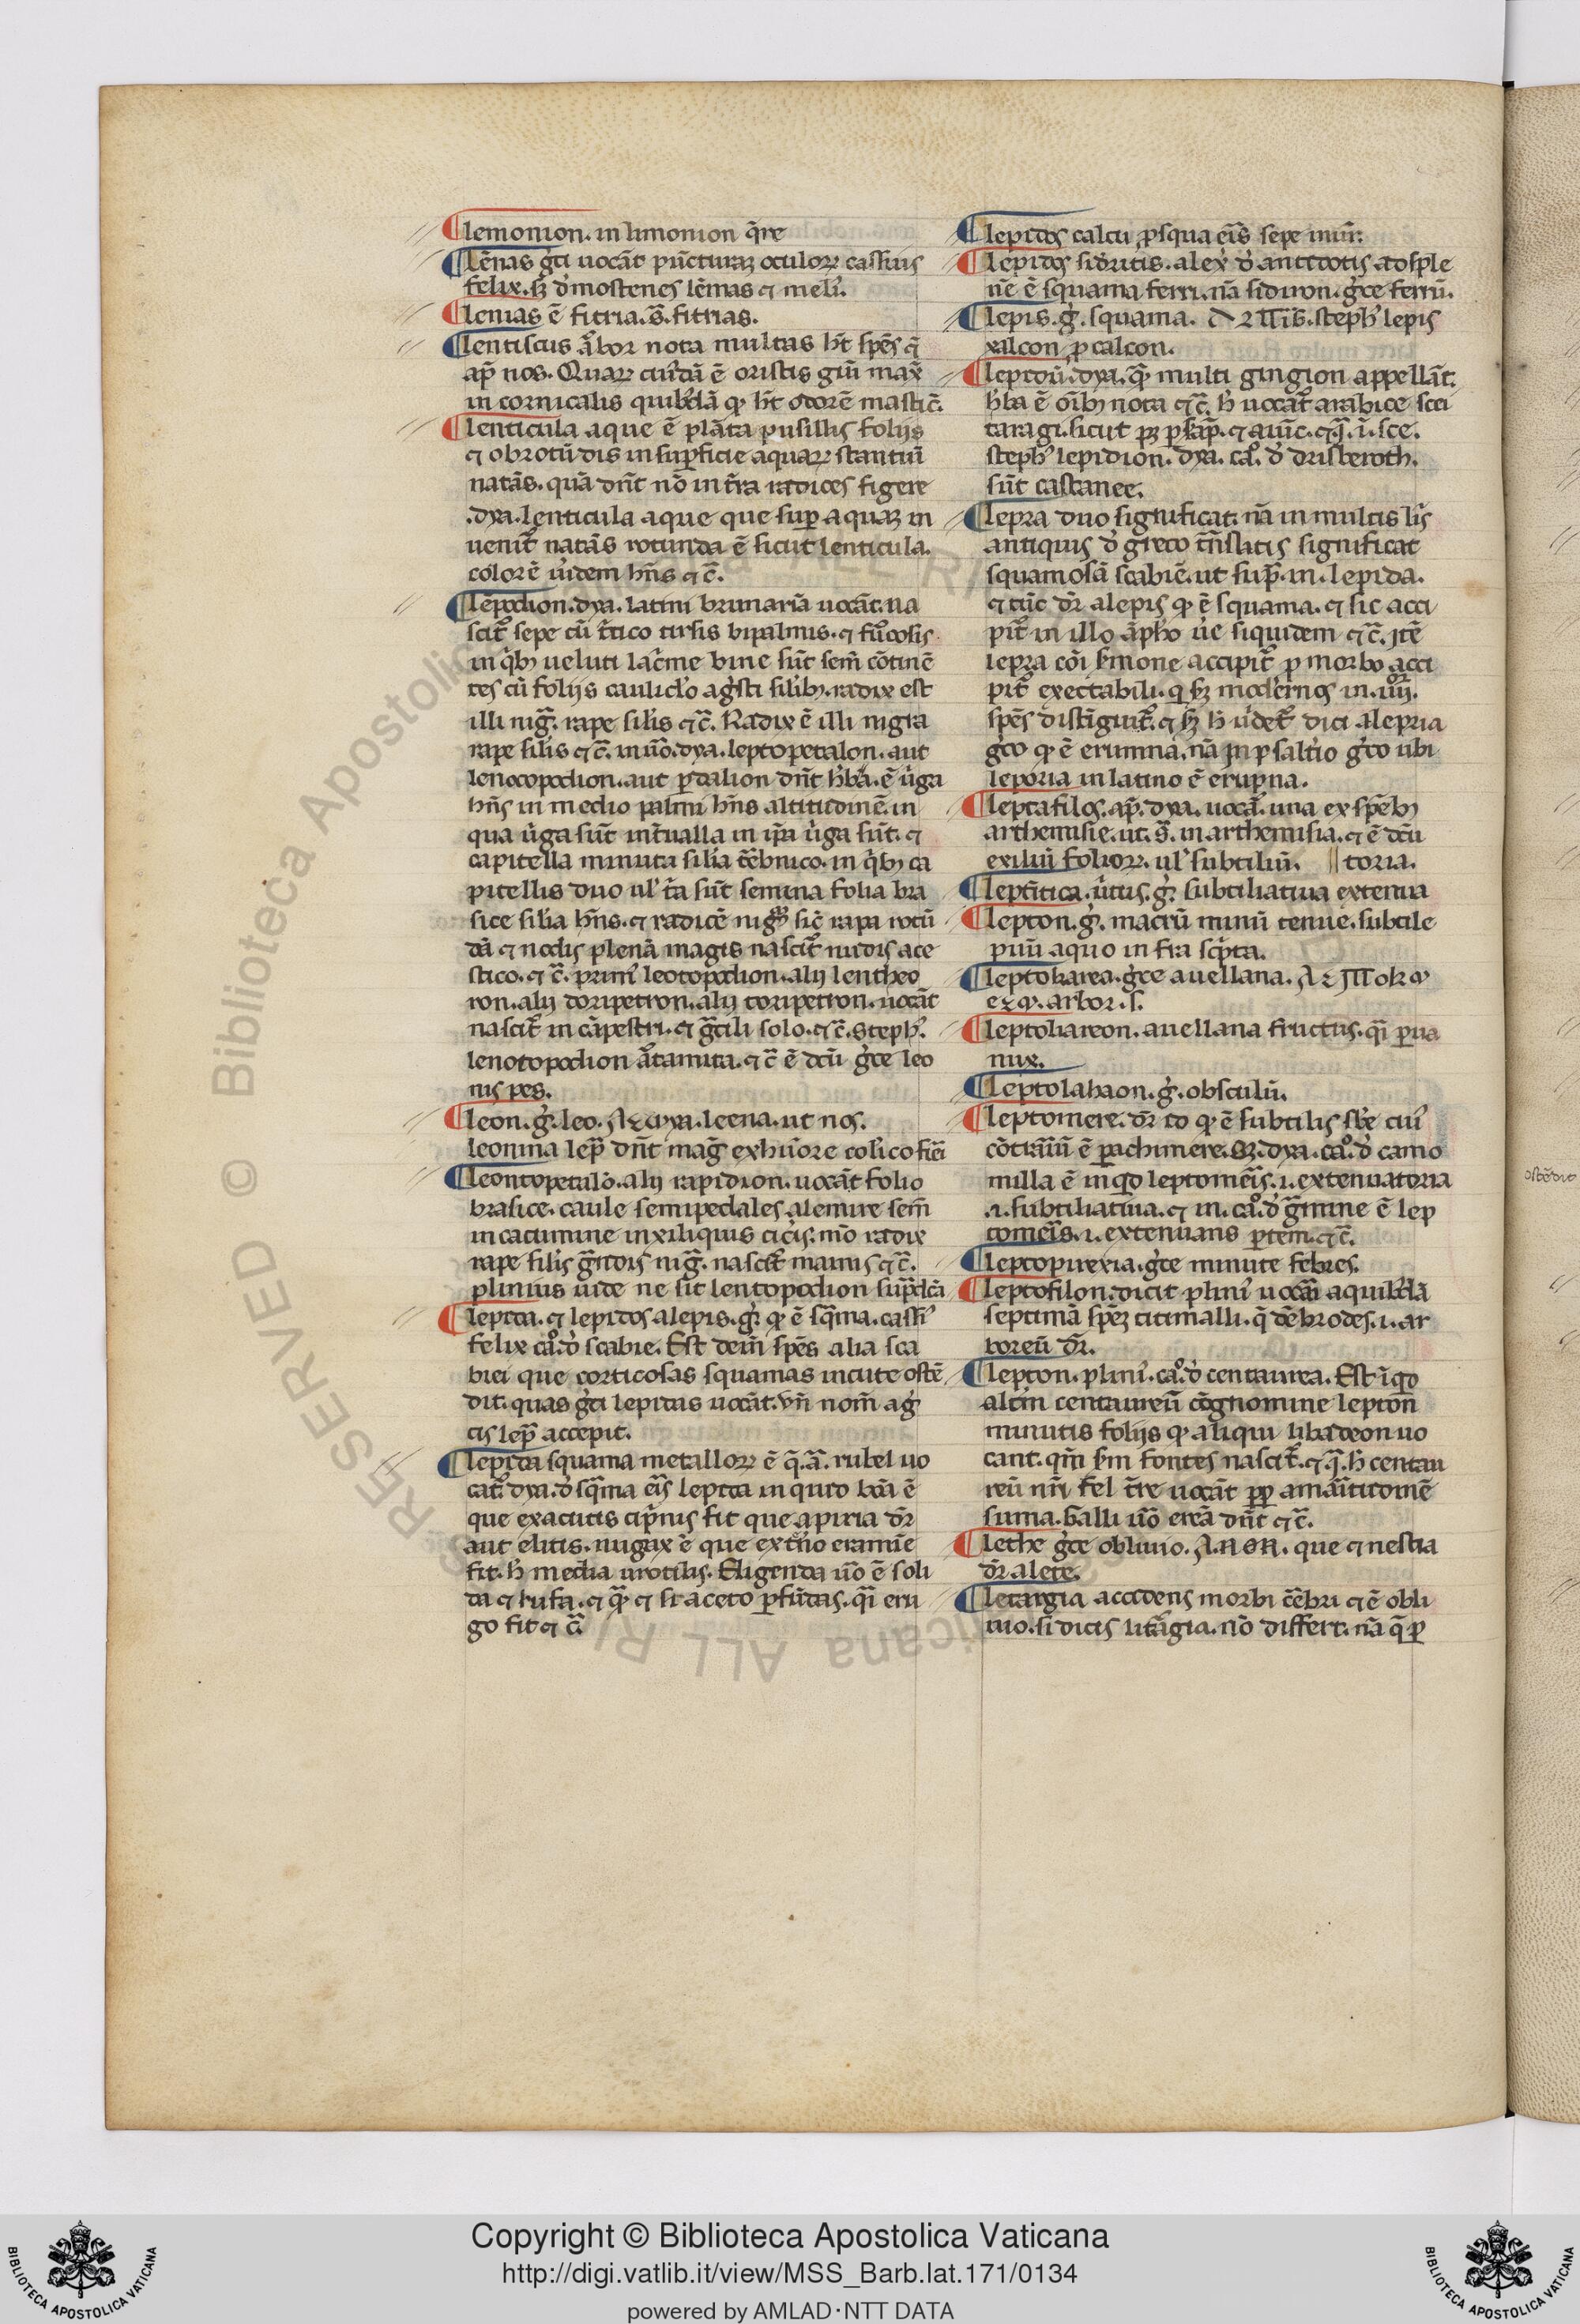 lemonion. in limonion q̄re
lēnas g̊ci uocāt pūcturaꝫ oculoꝝ cassius
felix. sꝫ d̓mostenes lēmas ⁊ meli᷒.
lenias ē fitria. s̄. fitrias.
lentiscus ar̄bor nota multas h̄t spēs ⁊
ap̄ nos. Quaꝝ
in cornicalis quib᷒dā ꝙ h̄t odorē mastic̄.
lenticula aque ē plāta pusillis folijs
⁊ obrotūdis in suꝑficie aquaꝝ stantiū
natās. quā dn̄t nō in t̄ra radices figere
.dya. lenticula aque que suꝑ aquaꝫ in
uenit᷑ natās rotunda ē sicut lenticula.
colorē uir̄idem hn̄s ⁊ c̄.
lēpodion. dya. latini brunariā uocāt. na
scit᷑ sepe cū t̄tico tirsis bipalmis. ⁊
in q̄bꝫ ueluti lac̄me bine sūt sem̄ cōtinē
tes cū folijs caulic̄lo ag̊sti silib᷒. radix est
illi nig̃. rape sil̓is ⁊ c̄. Radix ē illi nigra
rape sil̓is ⁊ c̄. in uō. dya. leptopetalon. aut
lenocopodion. aut ꝑdalion dn̄t h̓ba. ē u̓ga
hn̄s in medio palmi hn̄s altitudinē. in
qua u̓ga sūt int̄ualla in ip̄a u̓ga sūt. ⁊
capitella minuta sil̓ia in q̄bꝫ ca
pitellis duo ul̓ t̄a sūt semina folia bra
sice sil̓ia hn̄s. ⁊ radicē nig̃ sic̄ rapa rotū
dā ⁊ nodis plenā magis nascit᷑ nudis ace
stico. ⁊ c̄. primi᷒ leotopodion. alij lentheo
ron. alij doripetron. alij toripetron. uocāt
nascit᷑ in cāpestri. ⁊ g̃cili solo. ⁊ c̄. steph᷒.
lenotopodion ⁊ c̄ ē dcū g̊ce leo
nis pes.
leon. g̊. leo. leena. ut nos.
leonina lep̄ dn̄t mag̃ ex hūore col̓ico
leontopetalō. alij rapidion. uocāt folio
brasice. caule semipedales alemire sem̄
in cacumine in xiliquis cic̄is. mō radix
rape sil̓is g̃ndis nig̃. nascit᷑ ⁊ c̄.
plinius uide ne sit lentopodion sup̃dcā
lepida. ⁊ lepidos a lepis. g̊. ꝙ ē sq̃ma. cassi᷒
felix ca̓. d̓ scabie. Est dem̄ spēs alia sca
biei que corticosas squamas in cute ostē
dit. quas g̊ci lepidas uocāt. vn̄ nom̄ a g̊
cis lep̃ accepit.
lepida squama metalloꝝ ē q̄. a̅. rubel uo
cat᷑. dya. d̓ sq̃ma er̄is lepida in quid bōa ē
que exacutis cip̄nis fit que apiria dr̄
aut elitis. nugax ē que ext̓no eramīe
fit. h̄ media Eligenda uō ē soli
da ⁊ rufa. ⁊ q̄ ⁊ si aceto ꝑfūdas. q̄i eru
go fit ⁊ c̄.
lepidos calcu ꝓ squa er̄is sepe inuīr.
lepidos sideritis. alex̓ d̓ antidotis ad sple
nē ē squama ferri. nā sidiron. g̊ce ferrū.
lepis. g̊. squama. steph᷒ lepis
xalcon ꝓ calcon.
leptoū. dya. q̄ multi gingion appellāt.
h̓ba ē oīb᷒ nota ⁊ c̄. h̄ uocat᷑ arabice scei
taragi. sicut pꝫ ꝑ s̓ap̄. ⁊ auic̄. ⁊ q̄. ī. sce.
steph᷒ lepidion. dya. ca̓. d̓ drisberoth.
sūt castanee.
lepra duo significat. nā in multis lr̄is
antiquis d̓ greco tn̄slatis significat
squamosā scabiē. ut sup̄. in. lepida.
⁊ tūc dr̄ a lepis ꝙ ē squama. ⁊ sic acci
pit᷑ in illo āpho u̓e siquidem ⁊ c̄. Itē
lepra cōi s̓mone accipit᷑ ꝓ morbo acci
pit᷑ execrabili. q̄ sꝫ modernos in. iiij.
spēs distīguit᷑. ⁊ sꝫ h̄ uidet᷑ dici a lepria
g̊co ꝙ ē erumna. nā in psalt̓io g̊co ubi
leporia in latino ē erupna.
leptafilos. ap̄. dya. uocat᷑. una ex speb᷒
arthemisie. ut. s̄. in arthemisia. ⁊ ē dcū
exiliū folioꝝ. ul̓ subtiliū. ‖ toria.
lepti̅tica. u̓tus. g̊. subtiliatiua extenua
lepton. g̊. macrū minū tenue. subtile
piuū a quo infra sc̄pta.
leptokarea. g̊ce auellana.
arbor. s.
leptokareon. auellana fructus. q̄i ꝑua
nux.
leptolahaon. g̊. obsculū.
leptomere. dr̄ id ꝙ ē subtilis sb̓e cui᷒
cōt̄iū ē pachimere. Sꝫ. dya. ca̓. d̓ camo
milla ē in quo leptomer̄is. i. extenuatoria
.i. subtiliatiua. ⁊ in. ca̓. d̓ g̃mine ē lep
tomer̄is. i. extenuans ꝑtem. ⁊ c̄.
leptopirexia. g̊ce minute febres.
leptofilon. dicit plini᷒ uocari a quib᷒dā
septimā spēꝫ titimalli. q̄ dēbrodes. i. ar
boreū dr̄.
lepton. plini᷒. ca̓. d̓ centaurea. Est ī quo
alt̓m centaureū cōgnomine lepton
minutis folijs ꝙ aliqui libadeon uo
cant. qm̄ s̓m fontes nascit᷑. ⁊ q̄. h̄ centau
reū nr̄i fel t̄re uocāt ꝓp̄ amaritudinē
suma. Galli uō dn̄t ⁊ c̄.
lethe g̊ce obliuio. que ⁊ nestia
dr̄. a lete.
letargia accidens morbi c̓ebri ⁊ ē obli
uio. si dicis litargia. nō differt. nā q̄ ꝑ
ostēdit
Copyright © Biblioteca Apostolica Vaticana
http://digi.vatlib.it/view/MSS_Barb.lat.171/0134
powered by AMLAD·NTT DATA
BIBLIOTECA APOSTOLICA VATICANA
BIBLIOTECA APOSTOLICA VATICANA